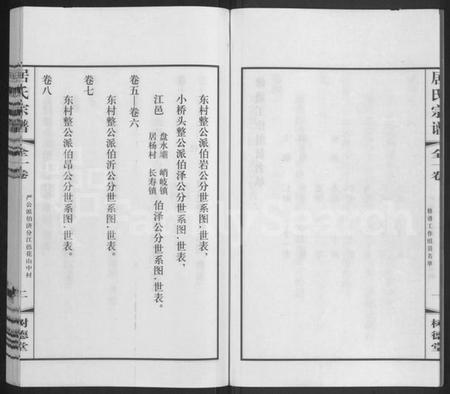 居氏宗谱
全一卷
修谱工作组员名单
一
树德堂
东村整公派伯岩公分世系图,世表,
小桥头整公派伯泽公分世系图,世表,
江邑
盘水壩 峭岐镇
居杨村 长寿镇
伯泽公分世系图,世表。
卷五—卷六
东村整公派伯沂公分世系图,世表。
卷七
东村整公派伯昂公分世系图,世表。
卷八
居氏宗谱
全一卷
严公派伯济分江邑花山中村
二
树德堂